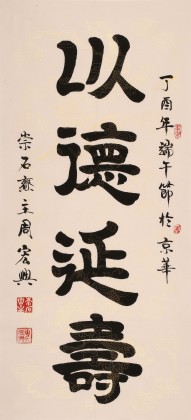 丁酉年端午節於京華
以德延壽
崇石齋主周宏興